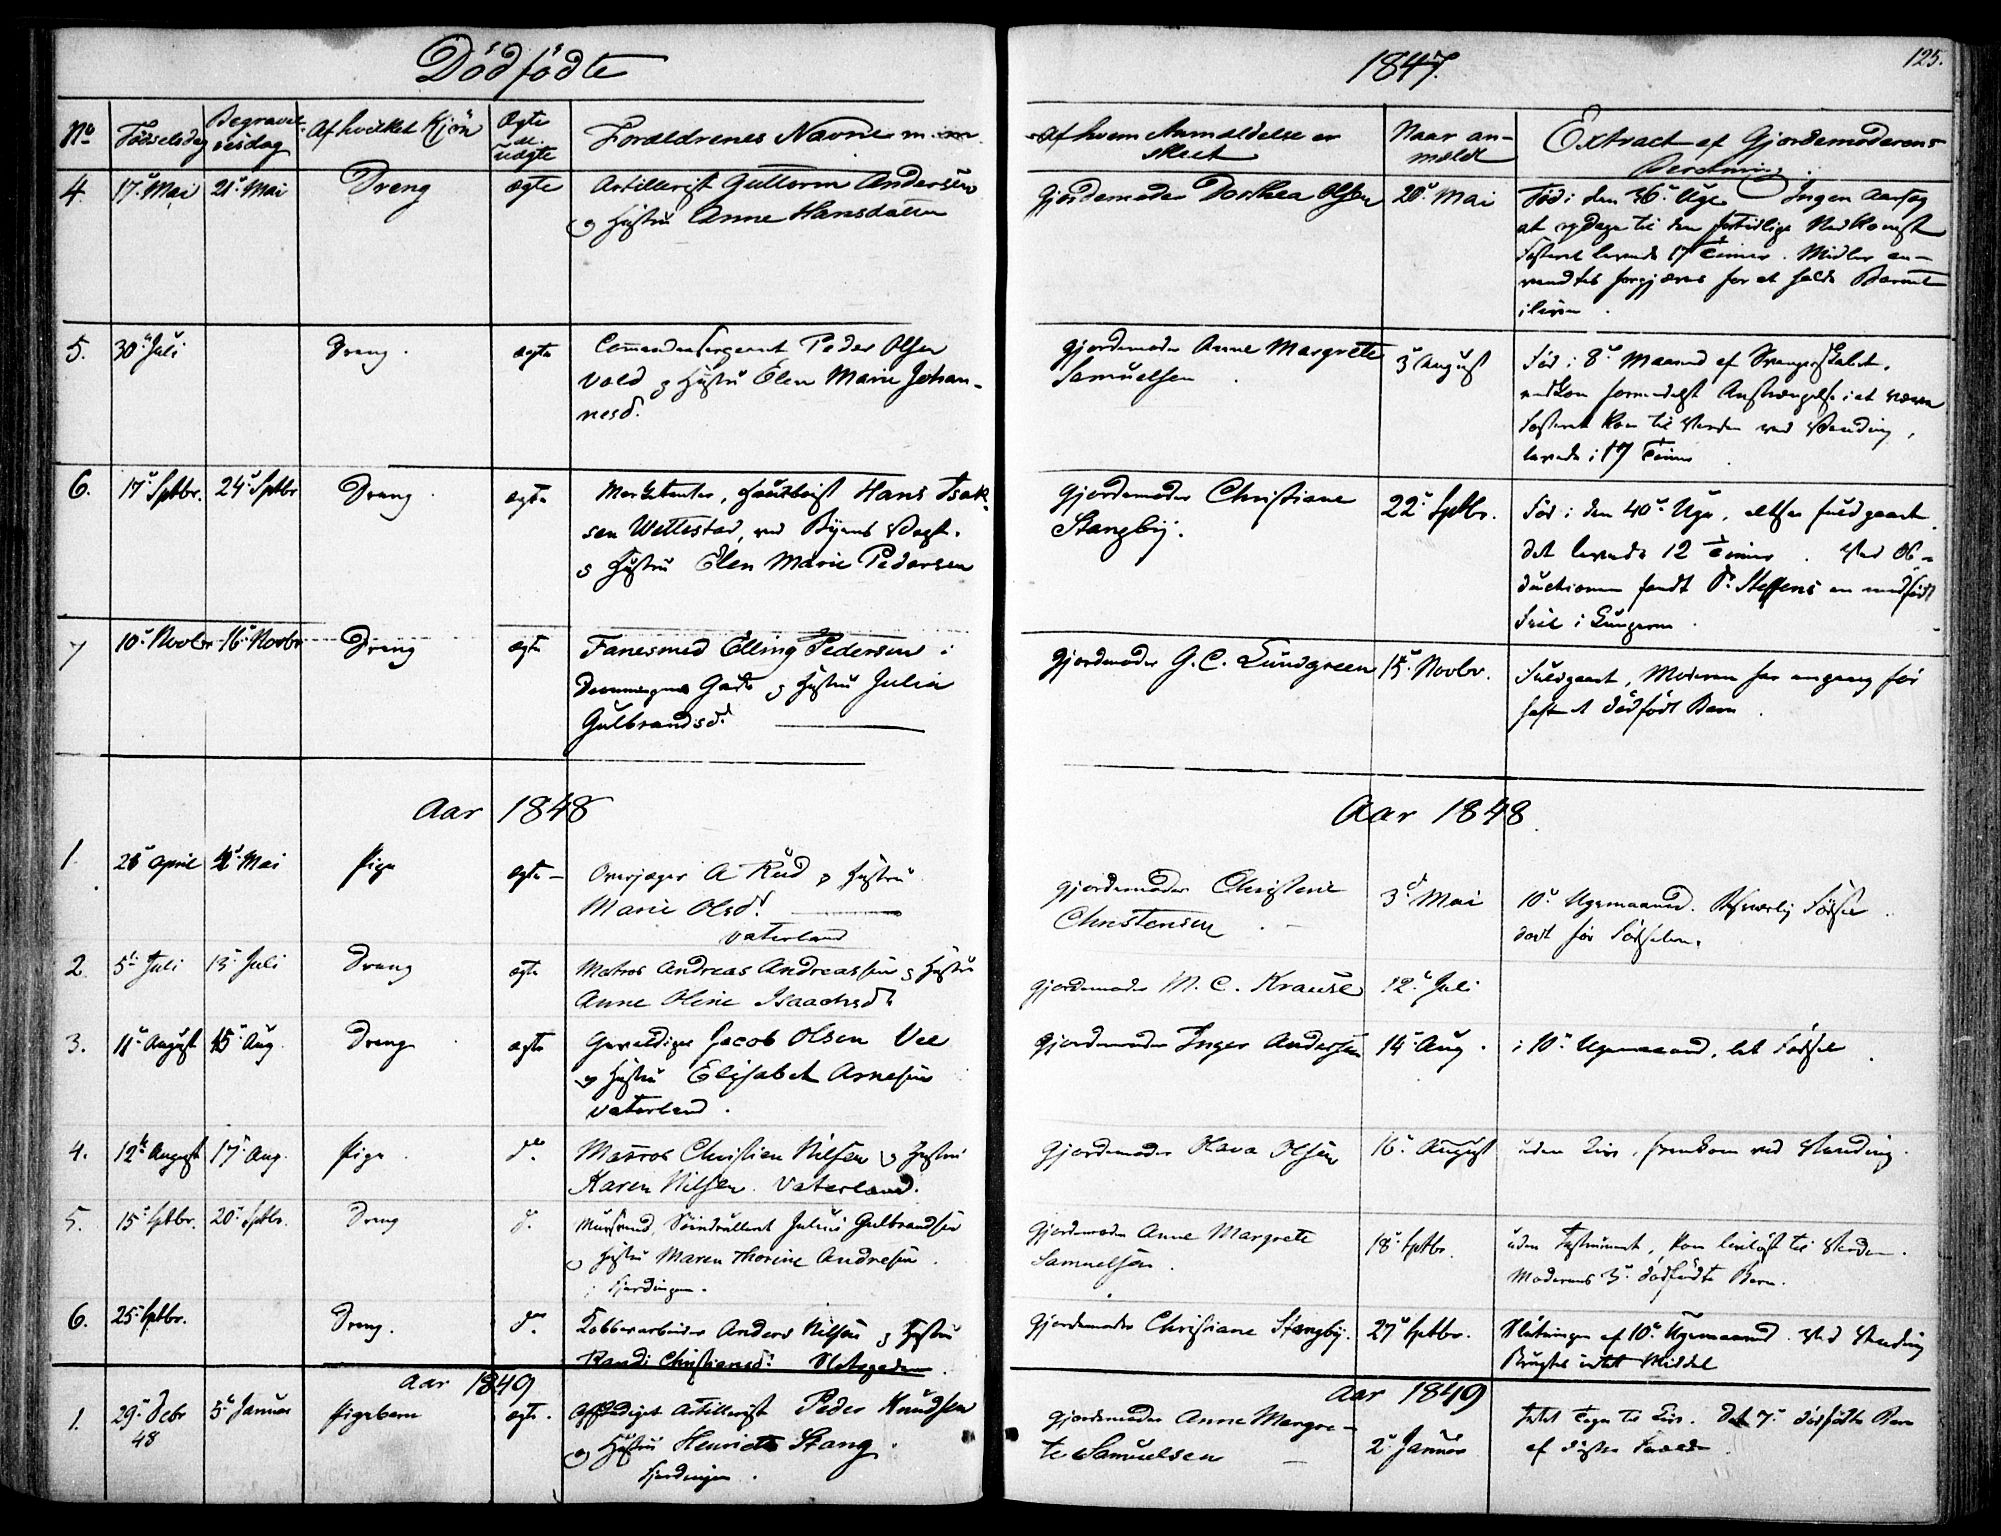 Dødfødte
1847.
125.
No
Fødselsdag
Begravelsesdag
Af hvilket Kjön
Ægte el. uægte
Forældrenes Navne m. m.
Af hvem Anmeldelse er skeet
Naar anmeldt
Extract af Gjordemoderens Beretning.
4. 17de Mai 21de Mai Dreng ægte Artillerist Guttorm Andersen
og Hustru Anne Hansdatter
Gjordemoder Dorthea Olsen 20de Mai
Fød i den 36te Uge Ingen Aarsag
at opdage til den fortidlige Nedkomst
Fosteret levende 17 Timer. Midler an-
vendtes forgjæves for at holde Barnet
ilive.
5. 30te Juli Dreng. ægte Commandeersergeant Peder Olsen
Vold og Hustru Elen Marie Johan-
nesd.
Gjordemoder Anne Margrete
Samuelsen
3 August
Fød i 8de Maaned af Svangerskabet.
Fosteret kom til Verden ved Vending,
levede i 17 Timer
6. 17de Septbr. 24de Septbr Dreng. ægte Marketenter, Hautboist Hans Isak-
sen Wettestad, ved Byens Vagt.
og Hustru Elen Marie Pedersen
Gjordemoder Christiane
Stangbÿ.
22de Septbr.
Fød i den 40de Uge, altsaa fuldgaaet.
det levende 12 Timer. Ved Ob-
ductionen fandt Dr. Steffens en medfødt
Feil i Lungerne.
7 10de Novbr 16de Novbr Dreng ægte Fanesmed Elling Pedersen i
Dronningens Gade og Hustru Julia
Gulbrandsd.
Gjordemoder G. C. Lundgreen 15de Novbr.
Fuldgaaet, Moderen har engang før
havt et dødfødt Barn.
Aar 1848
Aar 1848.
1. 26de April Mai Pige ægte Overjæger A Rud og Hustru
Marie Olsd.
Vaterland
Gjordemoder Christine
Christensen
3die Mai
10de Ugemaaned. Besværlig Fødsel.
død før Fødselen.
2. 5te Juli 13de Juli Dreng ægte Matros Andreas Andreassen og Hustru
Anne Oline Isaachsd.
Gjordemoder M. C. Krause 12te Juli
3. 11te August 15de Aug. Dreng ægte Gevaldiger Jacob Olsen Vee
og Hustru Elisabet Arnesen
Vaterland.
Gjordemoder Inger Andersen 14de Aug.
i 10de Ugemaaned, let Fødsel.
4. 12te August 17de Aug. Pige. do. Matros Christian Nilsen og Hustru
Karen Nilsen. Vaterland.
Gjordemoder Olava Olsen 16de August
uden Liv, fremkom ved Vending.
5. 15de Septbr. 20de Septbr. Dreng d. Muursvend, Julius Gulbrandsen
og Hustru Maren Thorine Andresen.
i Fjerdingen.
Gjordemoder Anne Margrete
Samuelsen.
18de Septbr.
uden Instrument, kom livløst til Verden.
Moderens 3die dødfødte Barn.
6. 25de Septbr. Dreng. do. Kobberarbeider Anders Nilsen og Hustru
Randi Christiansd. Slotsgaden.
Gjordemoder Christiane Stangbÿ. 27de Septbr.
Slutningen af 10de Ugemaaned. Ved Vending
Brugtes intet Middel
Aar 1849
Aar 1849
1. 29de Debr 48 5te Januar Pigebarn ægte. Afskediget Artillerist Peder Knudsen
og Hustru Henriette Stang.
Fjerdingen.
Gjordemoder Anne Margre-
te Samuelsen
2de Januar
Intet Tegn til Liv. Det 7de dødfødte Barn
af disse Forældre.